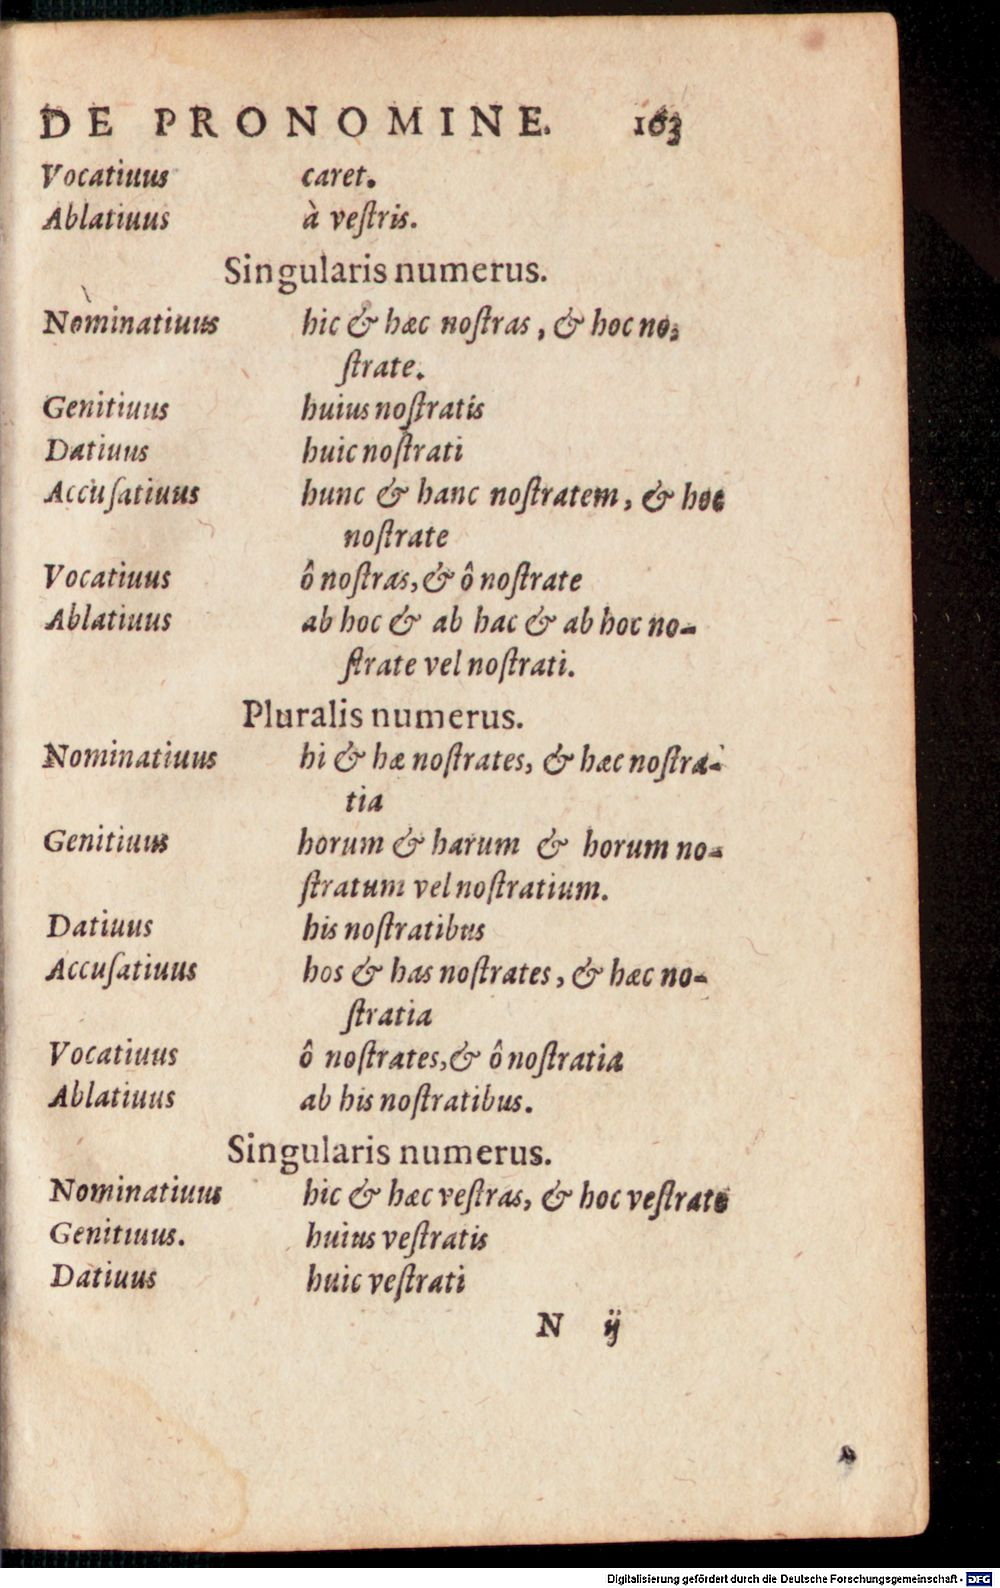 DE PRONOMINE. 163
Vocatiuus caret.
Ablatiuus à veſtris.
Singularis numerus.
Nominatiuus hic & hæc noſtras, & hoc no-
ſtrate.
Genitiuus huius noſtratis
Datiuus huic noſtrati
Accuſatiuus hunc & hanc noſtratem, & hoc
noſtrate
Vocatiuus ô noſtras, & ô noſtrate
Ablatiuus ab hoc & ab hac & ab hoc no-
ſtrate vel noſtrati.
Pluralis numerus.
Nominatiuus hi & hæ noſtrates, & hæc noſtra-
tia
Genitiuus horum & harum & horum no-
ſtratum vel noſtratium.
Datiuus his noſtratibus
Accuſatiuus hos & has noſtrates, & hæc no-
ſtratia
Vocatiuus ô noſtrates, & ô noſtratia
Ablatiuus ab his noſtratibus.
Singularis numerus.
Nominatiuus hic & hæc veſtras, & hoc veſtrate
Genitiuus. huius veſtratis
Datiuus huic veſtrati
N ij
Digitalisierung gefördert durch die Deutsche Forschungsgemeinschaft - DFG